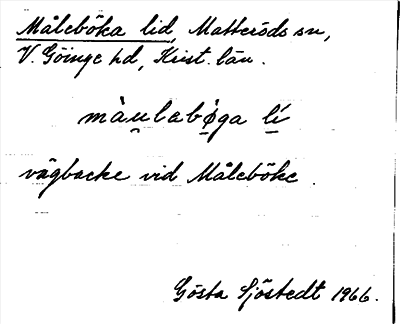 Måleböka lid, Matteröds sn,
V. Göinge hd, Krist. län.
mằu̯lebø̀ga lí
vägbacke vid Måleböke.
Gösta Sjöstedt 1966.